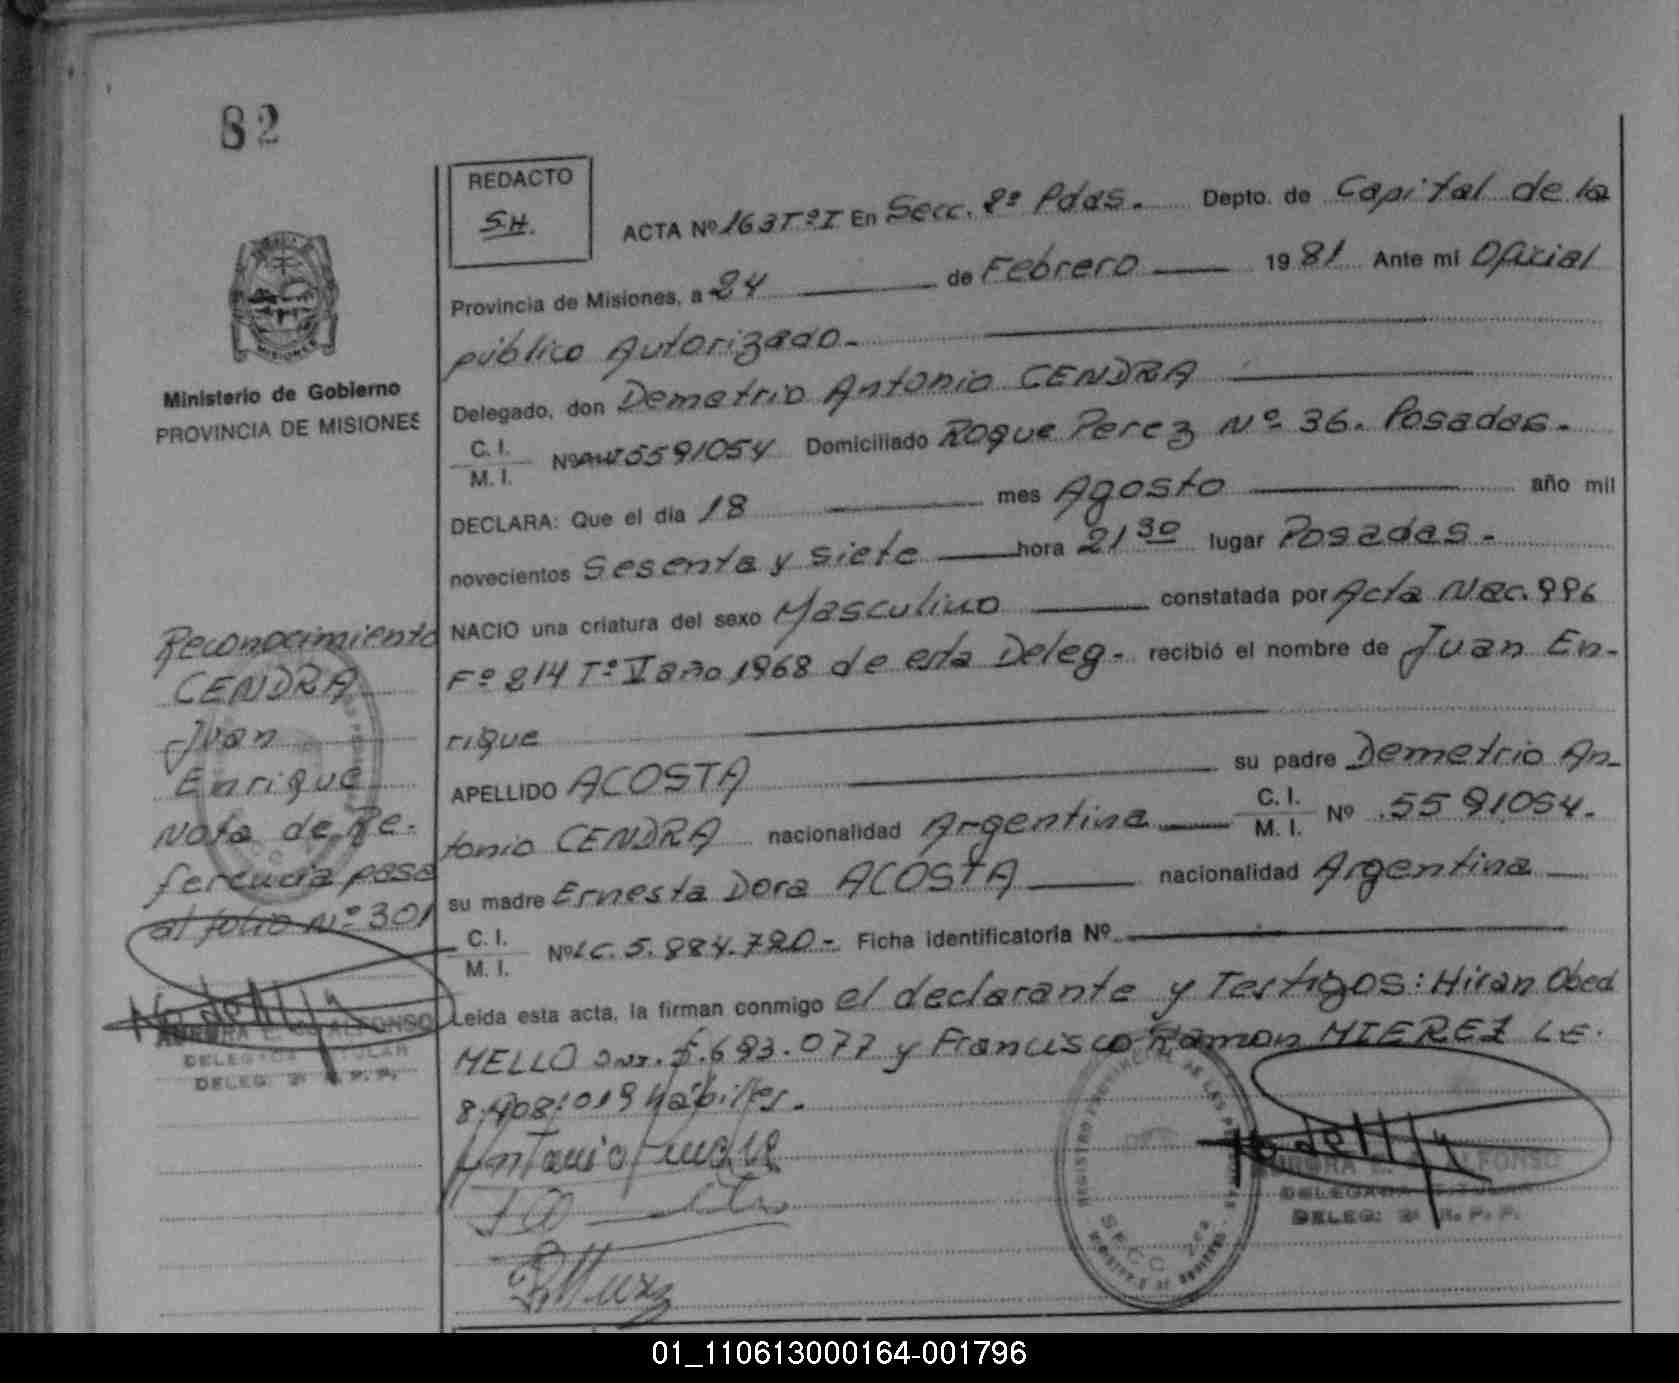 82
REDACTO
S.H.
ACTA Nº 163 Tº I En Secc. 2º Pdas. Depto. de Capital de la
Provincia de Misiones, a 24 de Febrero 1981 Ante mi Oficial
público Autorizado.
Delegado, don Demetrio Antonio CENDRA
C. I.
M. I. Nº 5591054 Domiciliado Roque Perez Nº 36. Posadas.
DECLARA: Que el día 18 mes Agosto año mil
novecientos Sesenta y siete hora 21 30 lugar Posadas.
NACIO una criatura del sexo Masculino constatada por Acta Nac. 996
Fº 214 Tº V año 1968 de esta Deleg. recibió el nombre de Juan En-
rique
APELLIDO ACOSTA su padre Demetrio An-
tonio CENDRA nacionalidad Argentina C. I. M. I. Nº 5591054.
su madre Ernesta Dora ACOSTA nacionalidad Argentina
C. I.
M. I. Nº LC. 5.884.720- Ficha identificatoria Nº
Leída esta acta, la firman conmigo el declarante y Testigos: Hiran Obed
MELLO 5.693.077 y Francisco Ramon MIEREZ L.E.
8.408.019 hábiles.
Ministerio de Gobierno
PROVINCIA DE MISIONES
Reconocimiento
CENDRA
Juan
Enrique
Nota de Re-
ferencia pasa
al folio Nº 301
AURORA E. ALFONSO
DELEGADA TITULAR
DELEG: 2ª R. P. P.
REGISTRO PROVINCIAL DE LAS PERSONAS
SECC 2da
AURORA E. ALFONSO
DELEGADA TITULAR
DELEG: 2ª R. P. P.
01_110613000164-001796